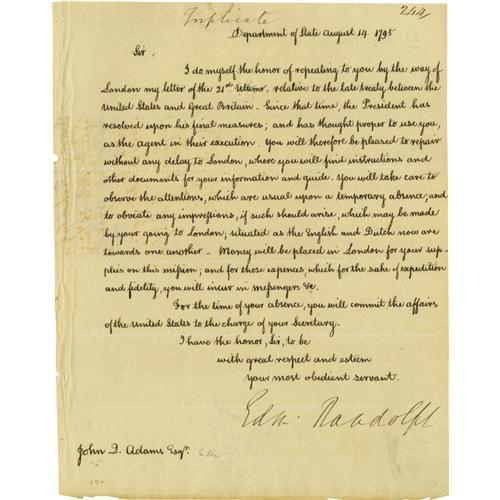 Triplicate
244
Department of State August 14 1795
Sir,
I do myself the honor of repeating to you by the way of
London my letter of the 21st Ultimo, relative to the late treaty between the
United States and Great Britain. Since that time, the President has
resolved upon his final measures; and has thought proper to use you,
as the agent in their execution. You will therefore be pleased to repair
without any delay to London, where you will find instructions and
other documents for your information and guide. You will take care to
observe the attentions, which are usual upon a temporary absence; and
to obviate any impressions, if such should arise, which may be made
by your going to London; situated as the English and Dutch now are
towards one another. Money will be placed in London for your sup-
plies on this mission; and for those expences, which for the sake of expedition
and fidelity, you will incur in messengers &c.
For the time of your absence, you will commit the affairs
of the United States to the charge of your Secretary.
I have the honor, Sir, to be
with great respect and esteem
your most obedient servant.
Edm. Randolph
John Q. Adams Esqr.